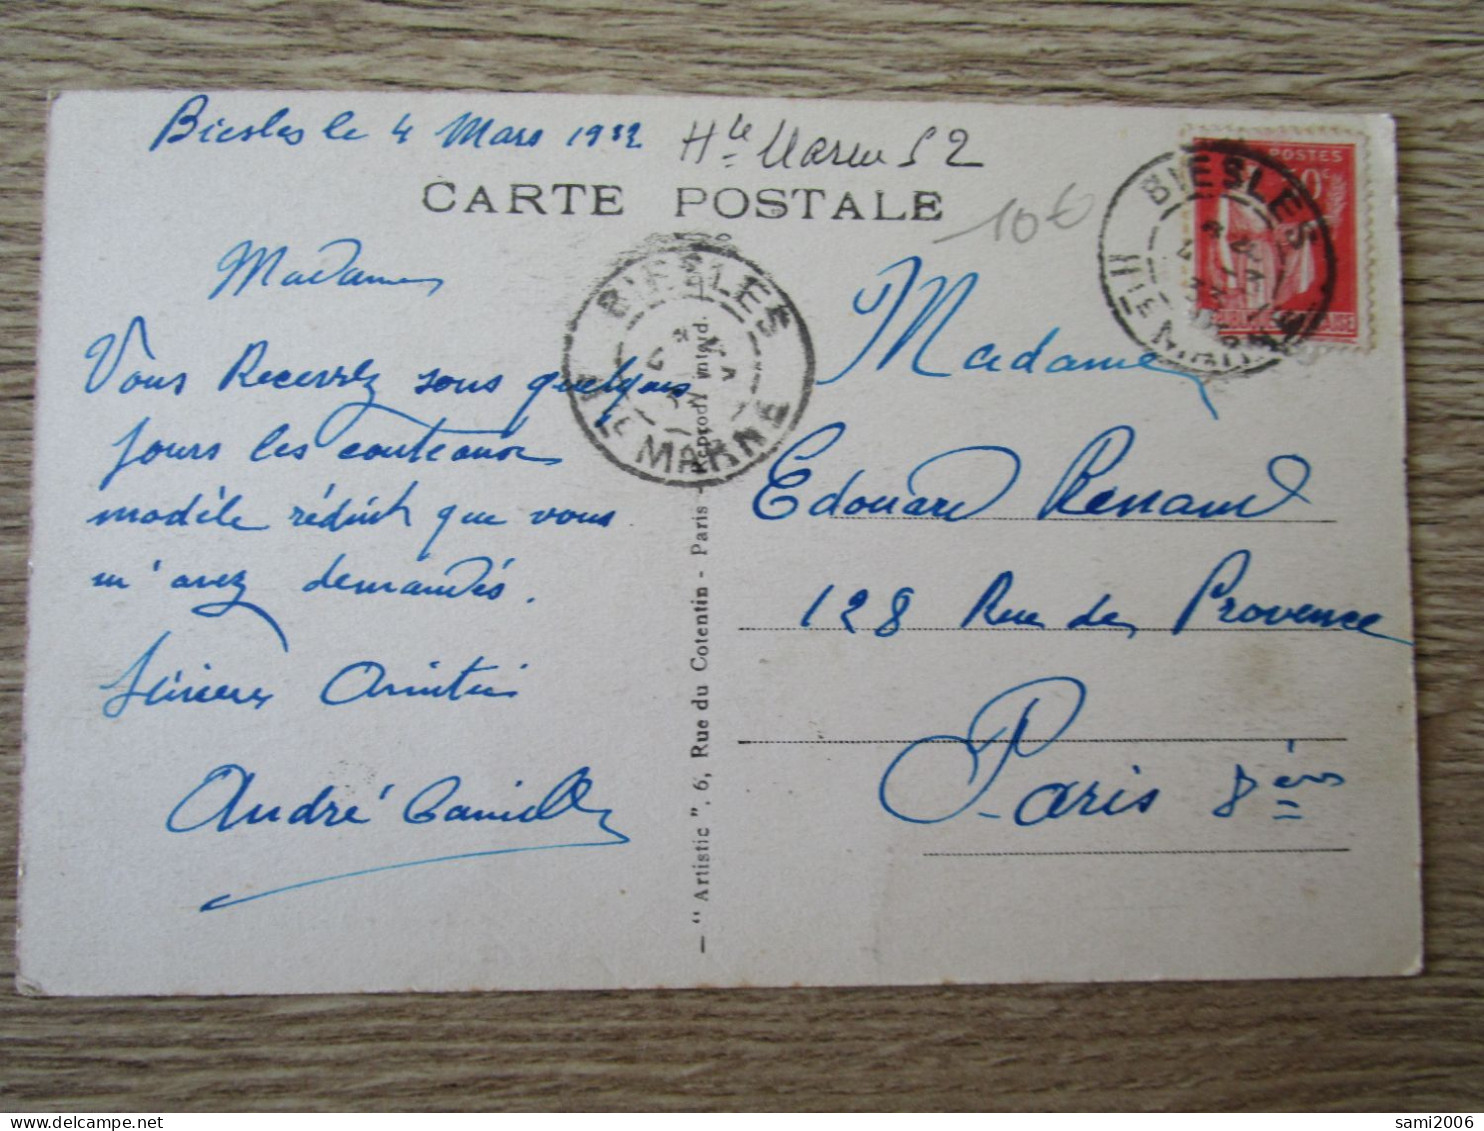 Biesles le 4 Mars 1932
Hte Marne 52
CARTE POSTALE
10€
POSTES
BIESLES
HTE MARNE
BIESLES
HTE MARNE
Madame
Vous Recevrez sous quelques
jours les couteaux
modèle réduit que vous
m'avez demandés.
Sincères Amitiés
André
— "Artistic", 6, Rue du Cotentin - Paris - Reprodn Interd.
Madame
Edouard Renaud
128 Rue de Provence
Paris 8ème
sami2006